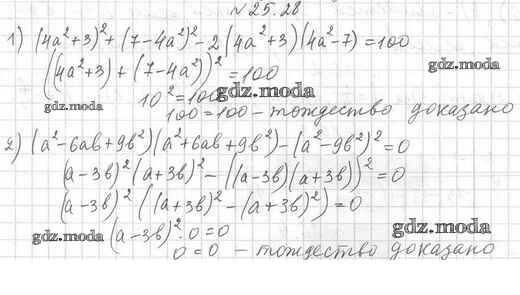 №25.28
1) (4a²+3)²+(7-4a²)²-2(4a²+3)(4a²-7)=100
((4a²+3)+(7-4a²))²=100
gdz.moda
10²=100
gdz.moda
100=100 - тождество доказано
gdz.moda
2) (a²-6ab+9b²)(a²+6ab+9b²)-(a²-9b²)²=0
(a-3b)²(a+3b)²-((a-3b)(a+3b))²=0
(a-3b)²((a+3b)²-(a+3b)²)=0
gdz.moda
(a-3b)²·0=0
gdz.moda
0=0 - тождество доказано
gdz.moda